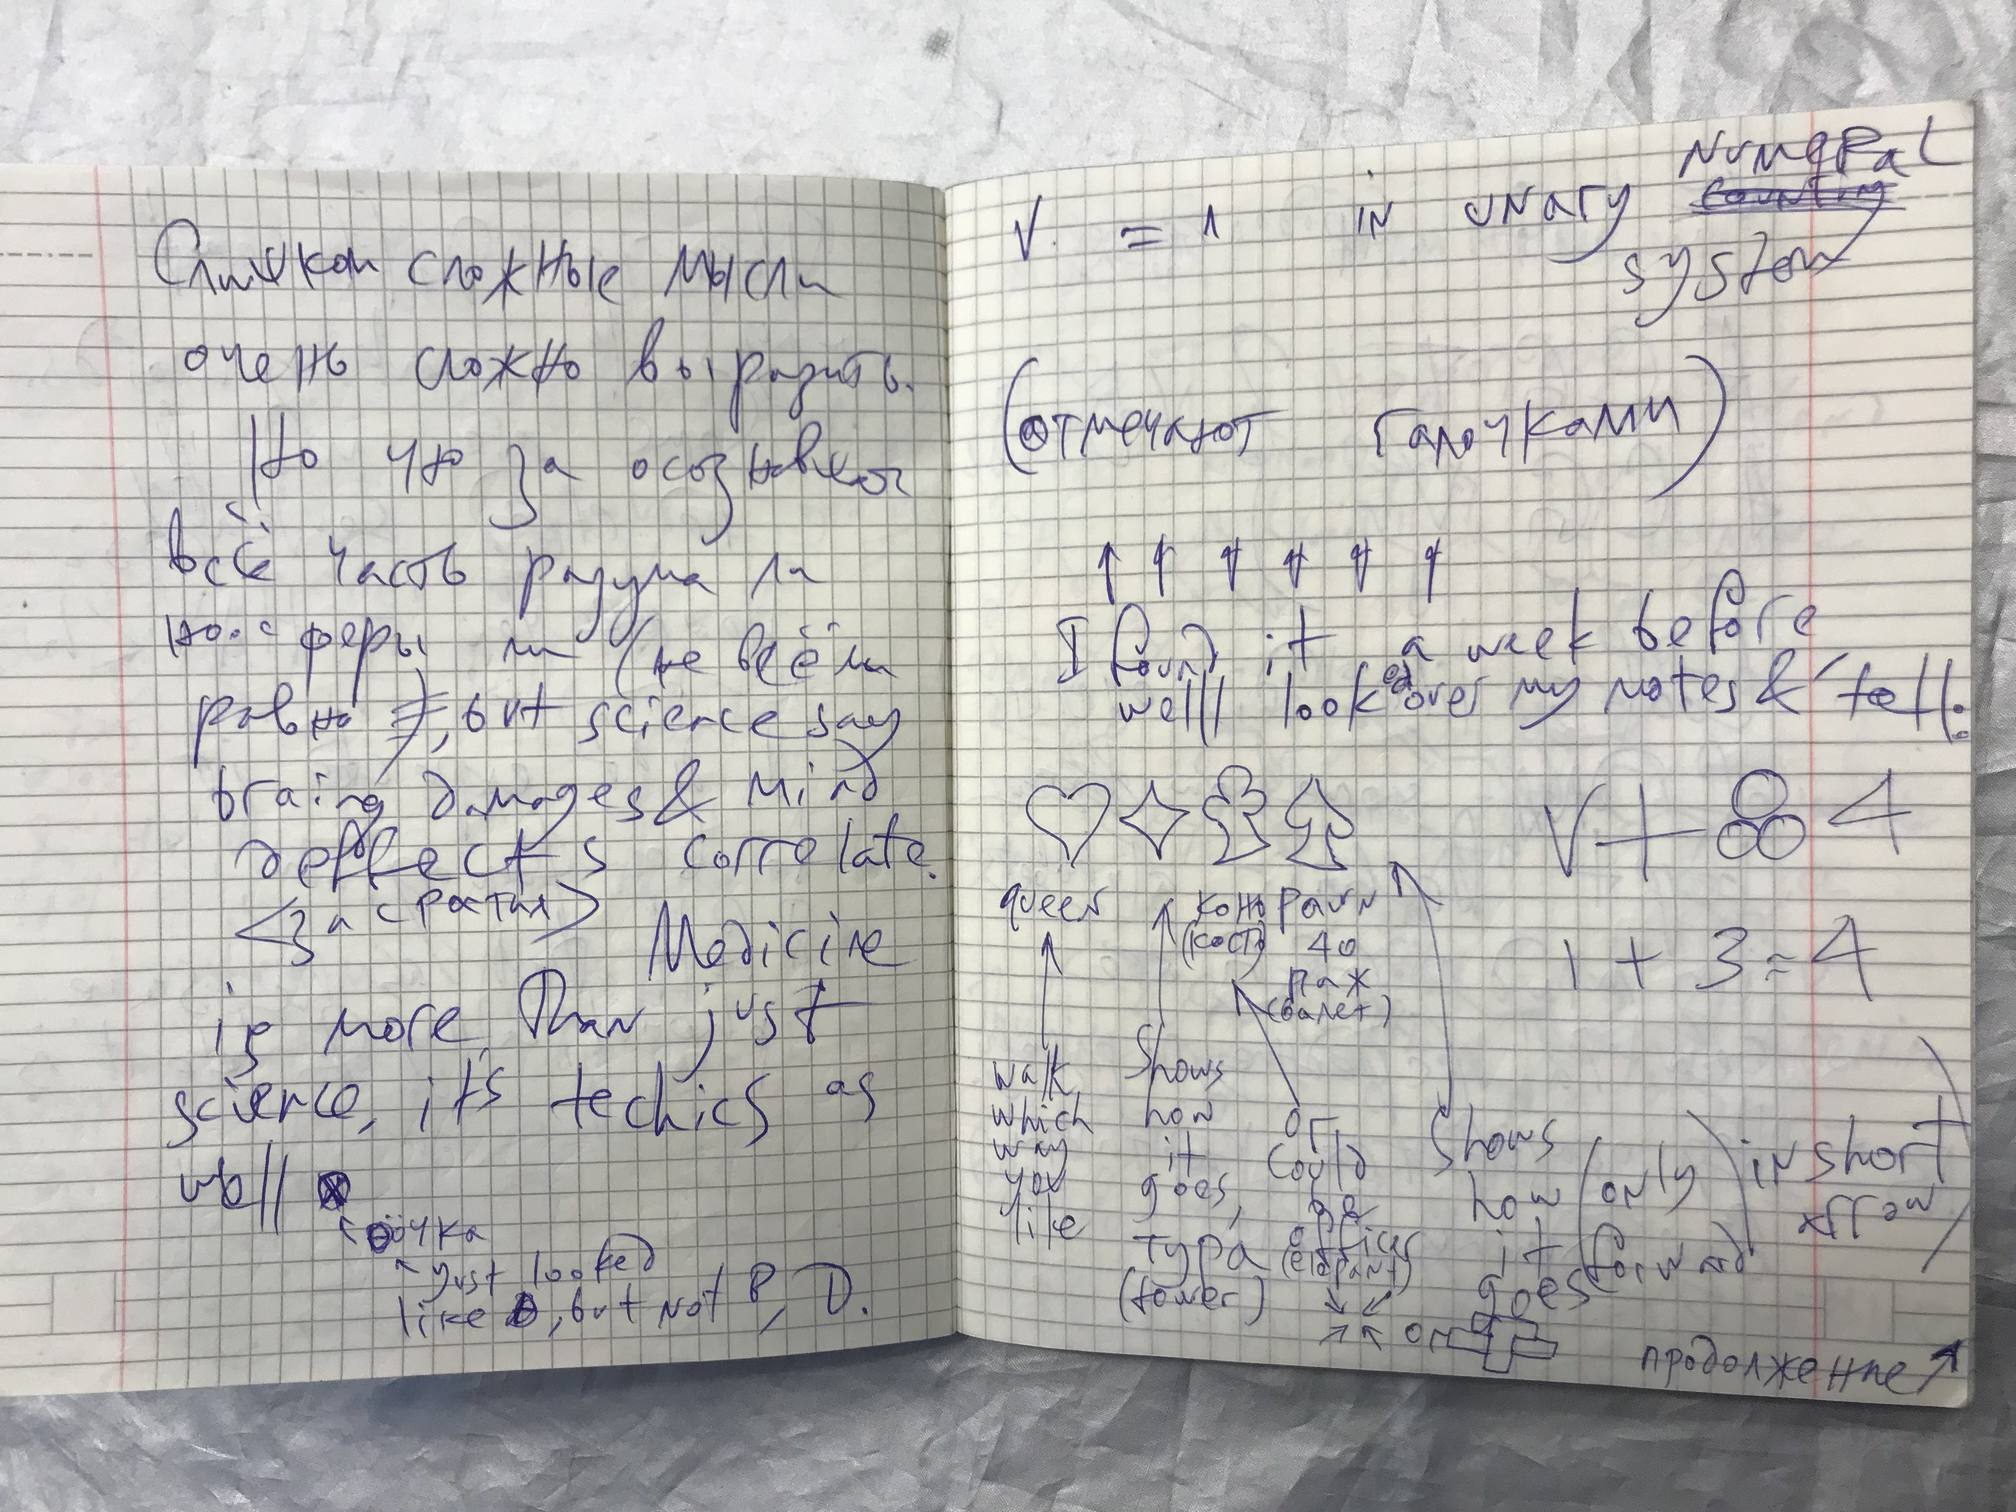 Слишком сложные мысли
очень сложно выразить.
Но что за осознаёт
всё часть разума ли
ноосферы ли (не всё ли
равно ), but science say
braing damages & mind
deffects correlate.
Medicine
is more than just
science, it's techics as
well
точка
just looked
like , but not P, D.
V. = 1 in unary numeral
counting
system
(отмечают галочками)
I found it a week before
well looked over my notes & tell.
V + 4
1 + 3 = 4
queen конь pawn
(кость) 40
пах
(балет)
walk
which
way
you
like
shows
how
it
goes,
тура
(tower)
or
could
be
officer
(elepant)
or
shows
how
it
goes
(only
forward)
in short
продолжение